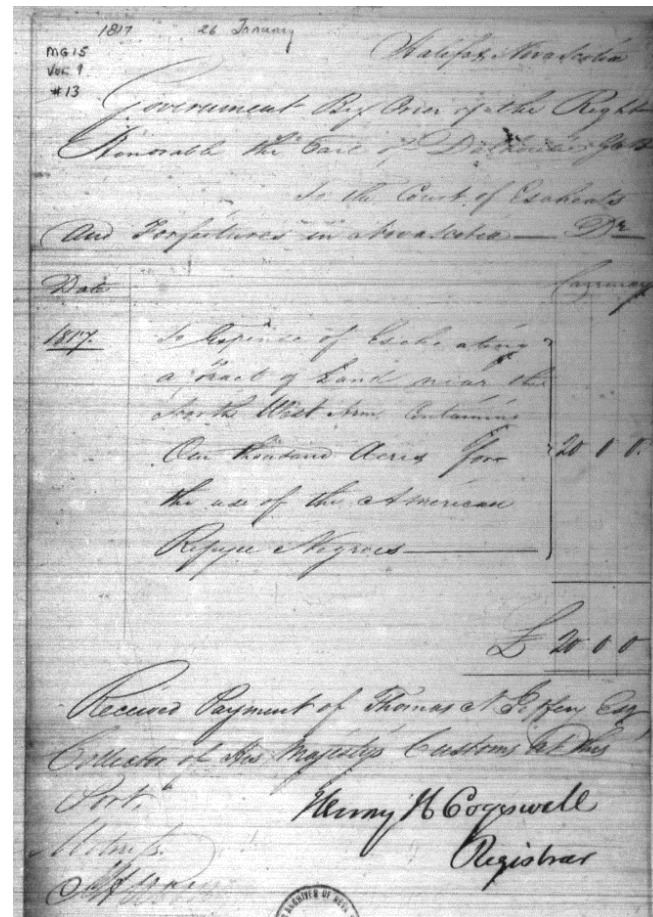 1817 26 January
MG15
Vol 9
#13
Halifax Nova Scotia
Government By Order of the Right
Honorable the Earl of Dalhousie
To the Court of Escheats
And Forfeitures in Nova Scotia — Dr
Date Currency
1817. To Expence of Escheating
a Tract of Land near the
North West Arm Containing
One thousand Acres For 20 0 0.
the use of the American
Refugee Negroes
£ 20 0 0
Received Payment of Thomas N. Jeffery Esq
Collector of His Majesty's Customs at this
Port.
Henry H Cogswell
Witness. Registrar
ARCHIVES OF